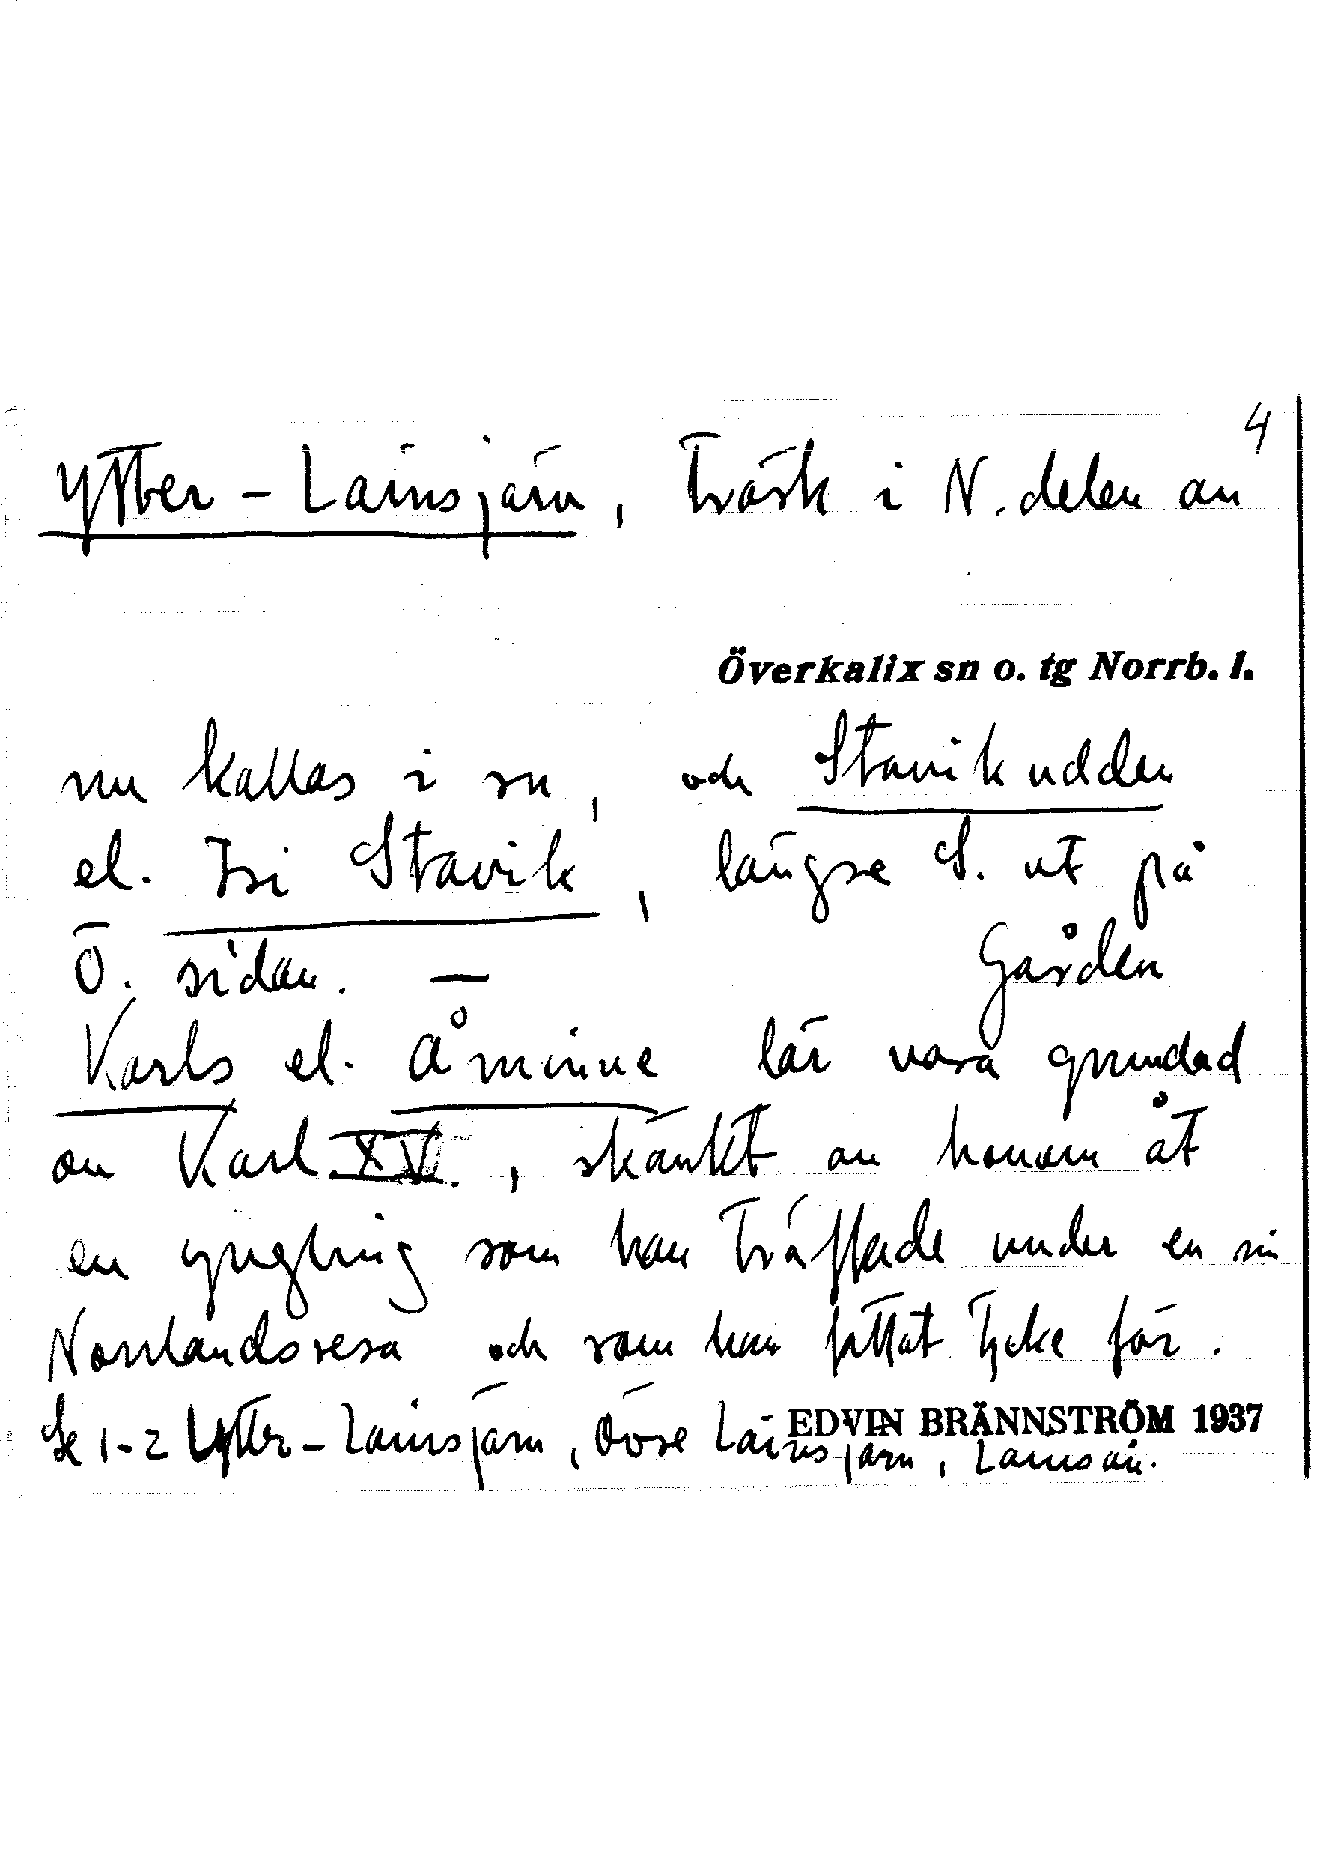 4
Ytter-Lainsjärn, träsk i N. delen av
Överkalix sn o. tg Norrb. l.
nu kallas i sn, och Stavikudden
el. Isi Stavik, längre S. ut på
Ö. sidan. — Gården
Karls el. Åminne lär vara grundad
av Karl XV., skänkt av honom åt
en yngling som han träffade under en sin
Norrlandsresa och som han fattat tycke för.
Se 1-2 Ytter-Lainsjärn, Övre Lainsjärn, Lainsån.
EDVIN BRÄNNSTRÖM 1937